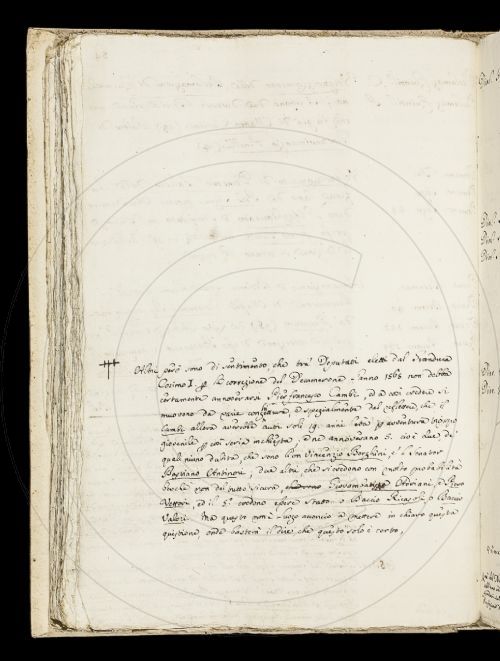 Altri però sono di sentimento, che tra' Deputati eletti dal Granduca
Cosimo I. p la correzione del Decamerone l'anno 1568 non debba
certamente annoverarsi Gio: Francesco Cambi, ed a così credere si
muovono da varie conghiture, e spezialmente dal riflettere, che il
Cambi allora avrebbe avuti soli 19. anni età p avventura troppo
giovenile p così seria inchiesta, e ne annoverano 5. cioè due de'
quali niuno dubita che sono Don Vincenzio Borghini, e 'l Senator
Bastiano Antinori, due altri che si credono con molta probabilità
non del tutto sicura Adriani, e Piero
Vettori, ed il 5.° credono essere stato o Baccio o Baccio
Valori. Ma questo non è luogo acconcio a mettere in chiaro questa
quistione, onde basterà il dire che questo solo è certo,